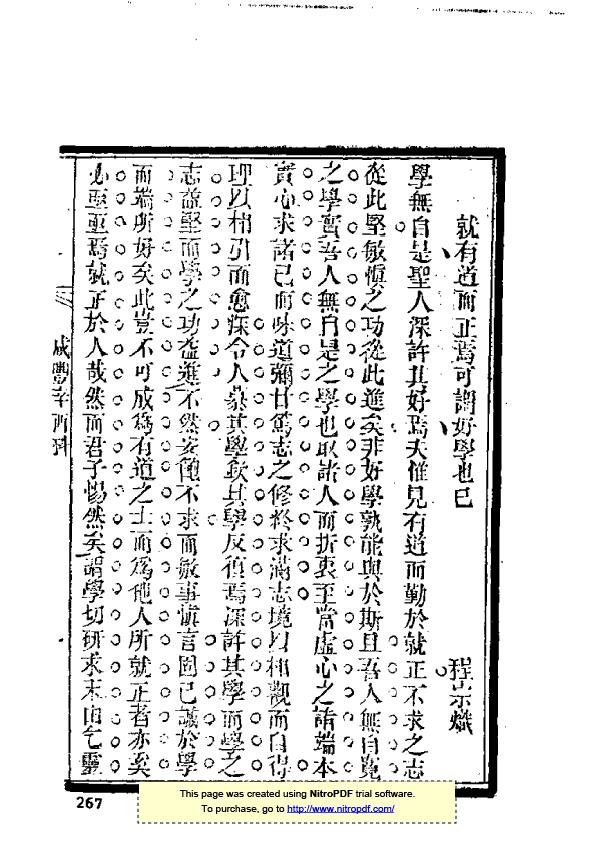 就有道而正焉可謂好學也已
程宗熾
學無自是聖人深許其好焉夫惟見有道而勤於就正不求之志
從此堅敏愼之功從此進矣非好學孰能與於斯且吾人無自寬
之學實吾人無自是之學也取諸人而折衷至當虛心之詣端本
實心求諸己而味道彌甘篤志之修終求滿志境以相觀而自得
理以相引而愈深令人慕其學欽其學反値焉深許其學而學之
志益堅而學之功益進不然安飽不求而敏事愼言固已誠於學
而端所好矣此豈不可成爲有道之士而爲他人所就正者亦奚
必亟亟焉就正於人哉然而君子惕然矣謂學切硏求未由乞靈
咸豐辛酉科
267
This page was created using NitroPDF trial software.
To purchase, go to http://www.nitropdf.com/